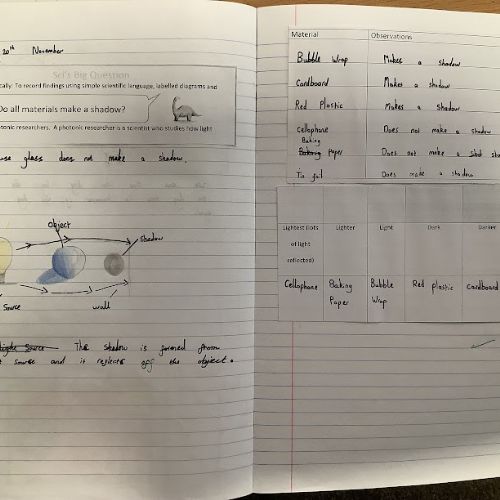 20th November
Sci's Big Question
ically: To record findings using simple scientific language, labelled diagrams and
Do all materials make a shadow?
otonic researchers. A photonic researcher is a scientist who studies how light
glass does not make a shadow.
Object
shadow
Source
wall
Light Source The shadow is formed from
source and it reflects off the object.
Material Observations
Bubble Wrap Makes a shadow
Cardboard Makes a shadow
Red Plastic Makes a shadow
Cellophane Does not make a shadow
Baking
Paper Does not make a
Tin foil Does make a shadow
Lightest (lots Lighter Light Dark Darker
of light
reflected)
Cellophane Baking Bubble Red plastic Cardboard
Paper Wrap